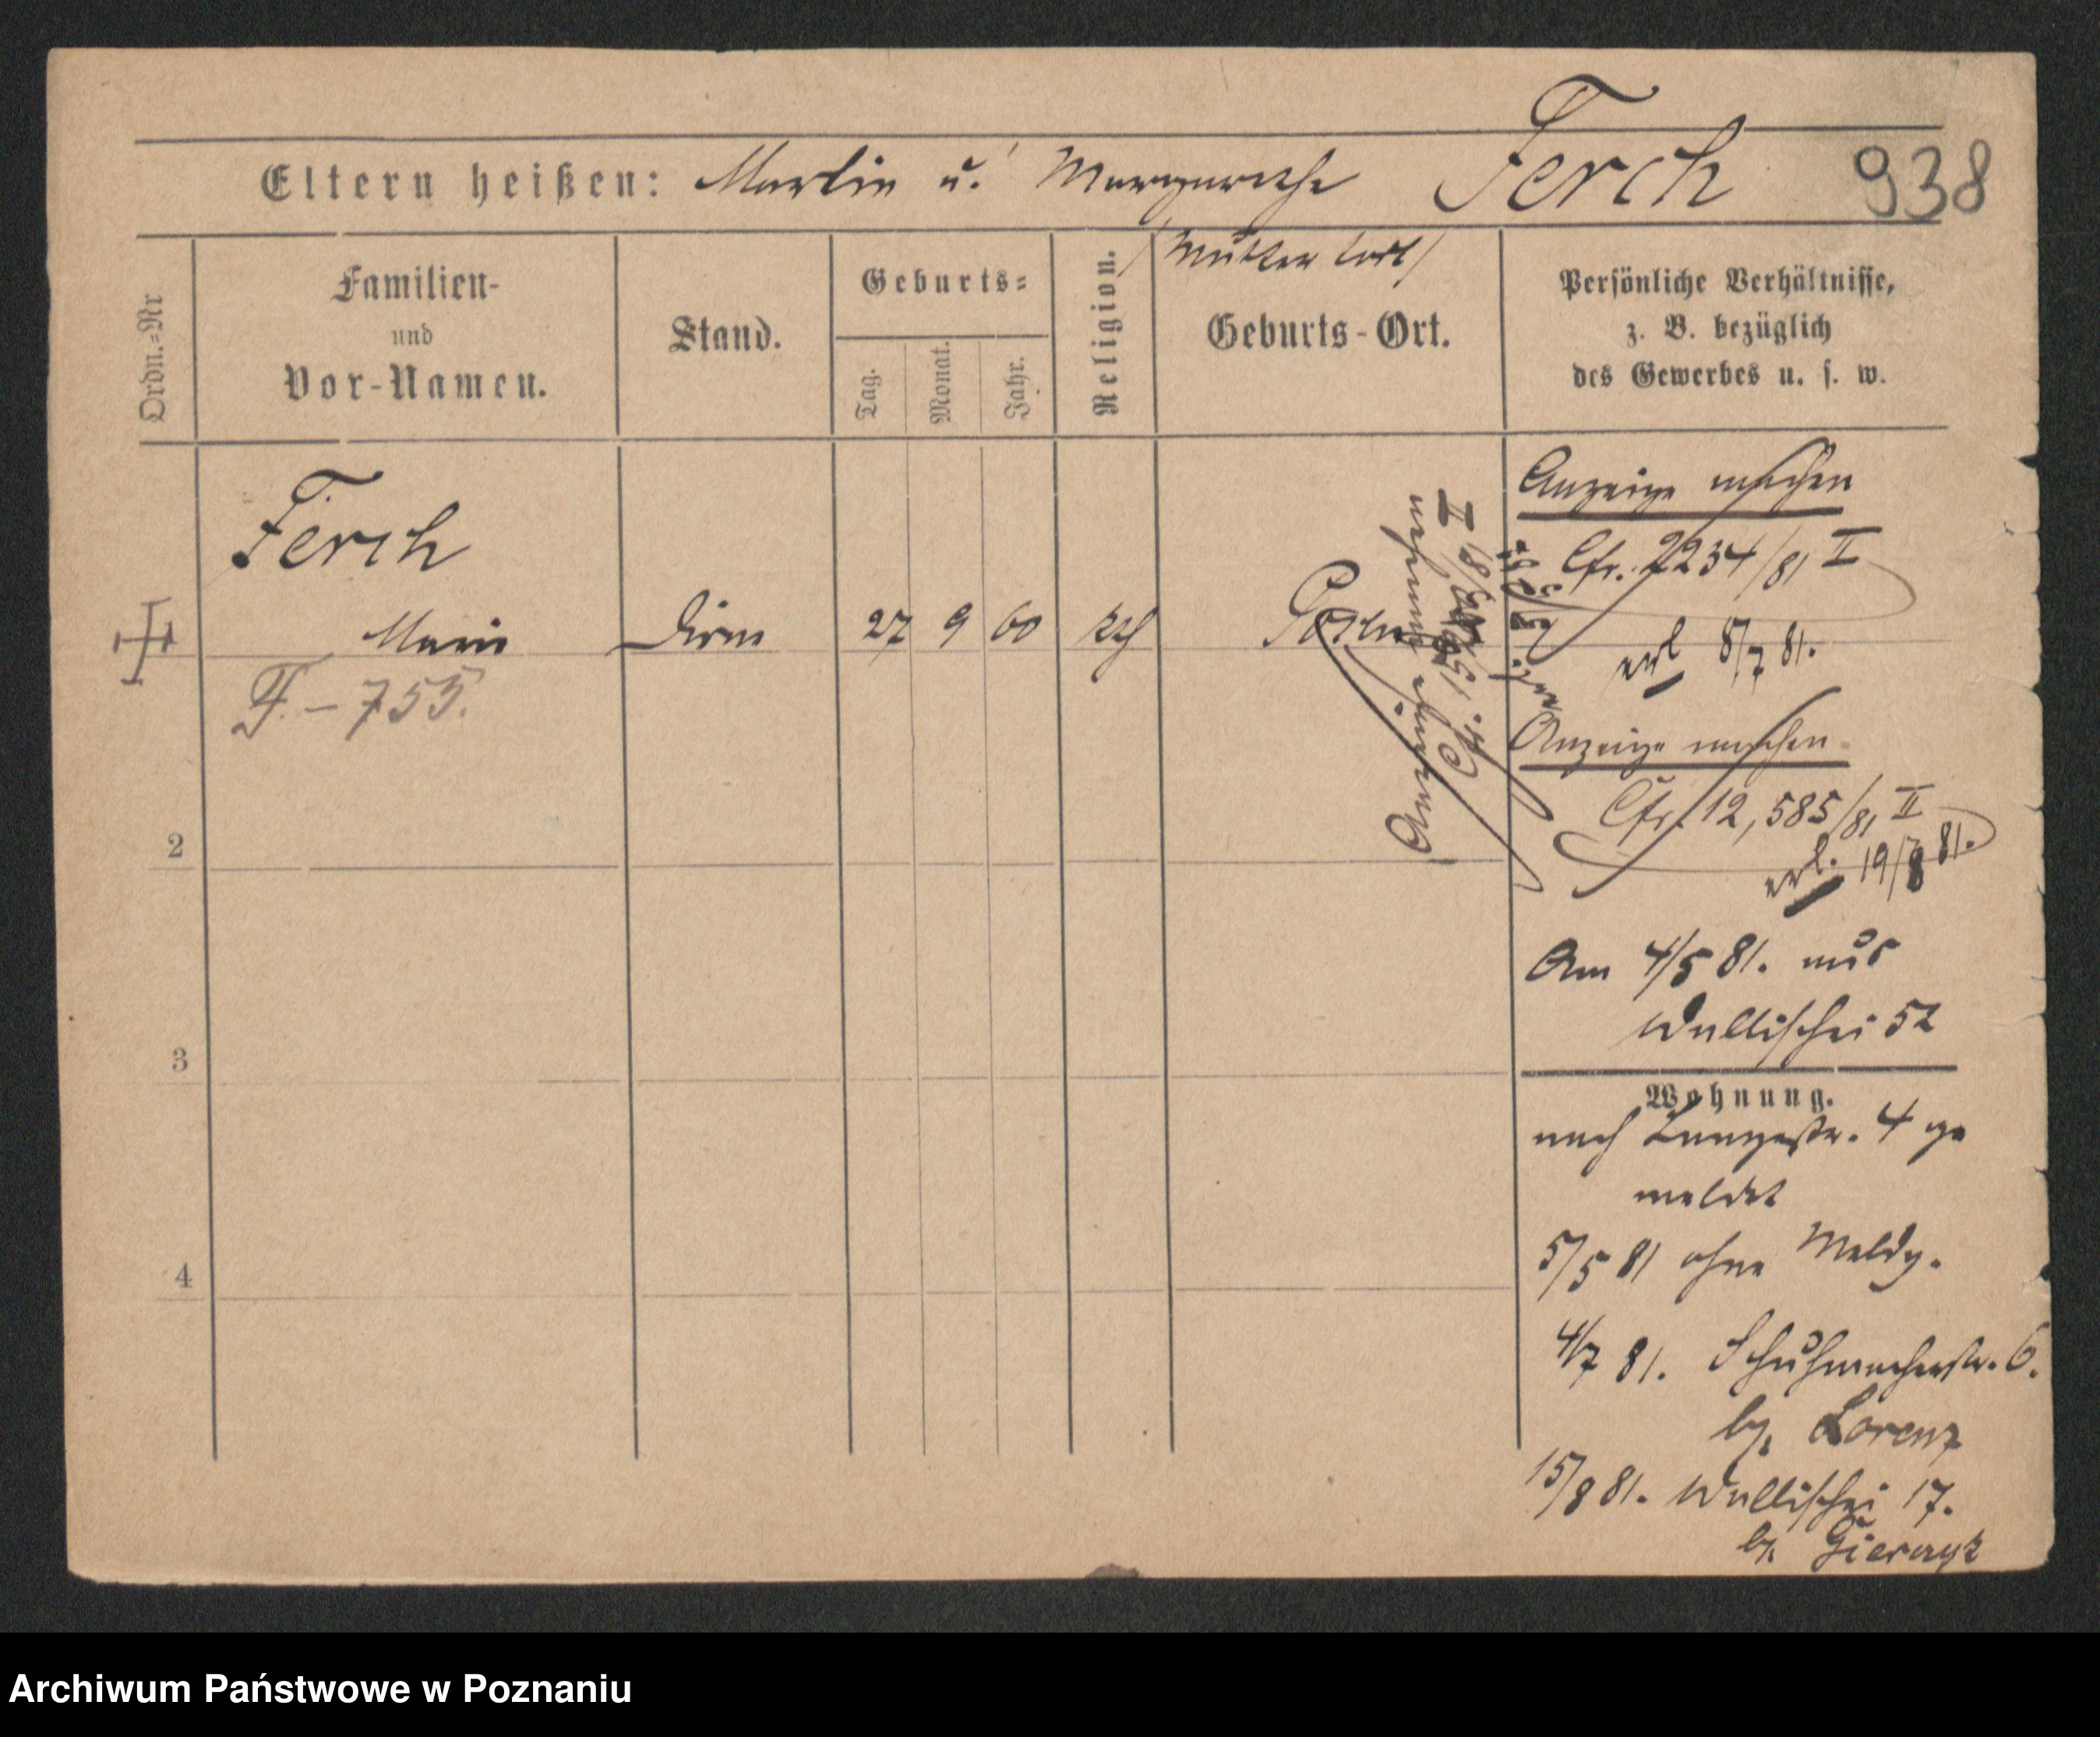 Eltern heißen: Martin u. Margarethe Ferch 938
(Mutter tot)
Ordn.=Nr
Familien-
und
Vor-Namen.
Stand.
Geburts=
Tag.
Monat.
Jahr.
Religion.
Geburts-Ort.
Persönliche Verhältnisse,
z. B. bezüglich
des Gewerbes u. s. w.
Ferch
Marie Dirne 27 9 60 kth Posen
F. – 755.
2
3
4
Anzeige machen
Cfr. 2234/81 II
erl 8/7 81.
Anzeige machen
Cfr. 12,585/81 II
erl. 19/8 81.
Am 4/5 81. aus
Wallischei 52
Wohnung.
nach Langestr. 4 ge
meldet
5/5 81 ohne Meldg.
4/7 81. Schuhmacherstr. 6.
by. Lorenz
15/8 81. Wallischei 17.
by.
Archiwum Państwowe w Poznaniu